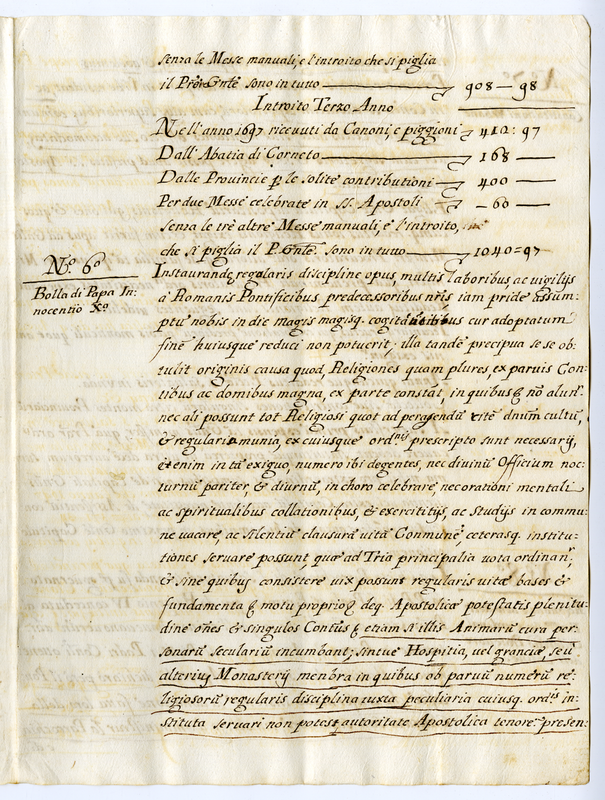 senza le Messe manuali, e l'introito che si piglia
il Prōr Gn̄le sono in tutto 908 — 98
Introito Terzo Anno
Nell'anno 1697 ricevuti da Canoni, e piggioni 412: 97
Dall'Abatia di Corneto 168 —
Dalle Provincie p le solite contributioni 400 —
Per due Messe celebrate in SS. Apostoli — 60 —
Senza le trè altre Messe manuali, e l'introito,
che si piglia il P. Gnt̄e. sono in tutto 1040 = 97
N.º 6º
Bolla di Papa In:
nocentio Xº
Instaurandę regularis discipline opus, multis laboribus ac vigilijs
à Romanis Pontificibus predecessoribus nr̄is iam pride assum-
ptū nobis in die magis magisq. cogitantibus cur adoptatum
finē huiusque reduci non potuerit; illa tandē precipua se se ob:
tulit originis causa quod, Religiones quam plures, ex paruis Con
tibus ac domibus magna, ex parte constāt, in quibus nō alunt̄
nec ali possunt tot Religiosi quot ad peragendū ritē dnum cultū,
& regularia munia, ex cuiusque ord.nis prescripto sunt necessarij,
etenim in tā exiguo, numero ibi degentes, nec divinū Officium noc
turnū pariter, & diurnū, in choro celebrare, nec orationi mentali
ac spiritualibus collationibus, & exercitijs, ac studijs in commu
ne vacare, ac silentiū clausurā vitā Conmunē, ceterasq. institu:
tiones servare possunt, quæ ad Tria principalia vota ordinanr̄,
& sine quibus consistere vix possunt regularis vitæ bases &
fundamenta motu proprio deq. Apostolicæ potestatis plenitu:
dine oēs & singulos Contūs etiam si illis Animarū cura per
sonarū seculariū incumbant; sint ve Hospitia, vel granciæ, seu
alterius Monasterij menbra in quibus ob parvū numerū re:
ligiosorū regularis disciplina iuxta peculiaria cuiusq. ord.is in:
stituta servari non potest autoritate Apostolica tenore presen: